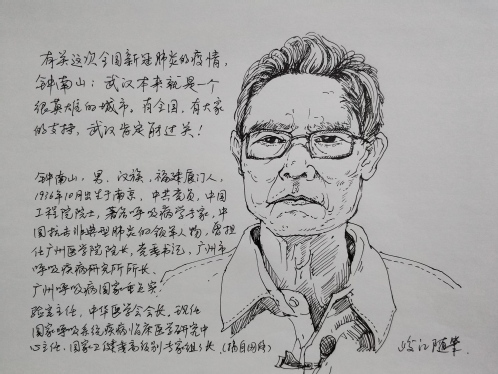 有关这次全国新冠肺炎的疫情，
钟南山：武汉本来就是一个
很英雄的城市，有全国，有大家
的支持，武汉肯定能过关！
钟南山，男，汉族，福建厦门人，
1936年10月出生于南京，中共党员，中国
工程院院士，著名呼吸病学专家，中
国抗击非典型肺炎的领军人物，曾担
任广州医学院院长，党委书记，广州市
呼吸疾病研究所所长，
广州呼吸病国家重点实
验室主任，中华医学会会长，现任
国家呼吸系统疾病临床医学研究中
心主任、国家卫健委高级别专家组组长（摘自网络）
江随笔